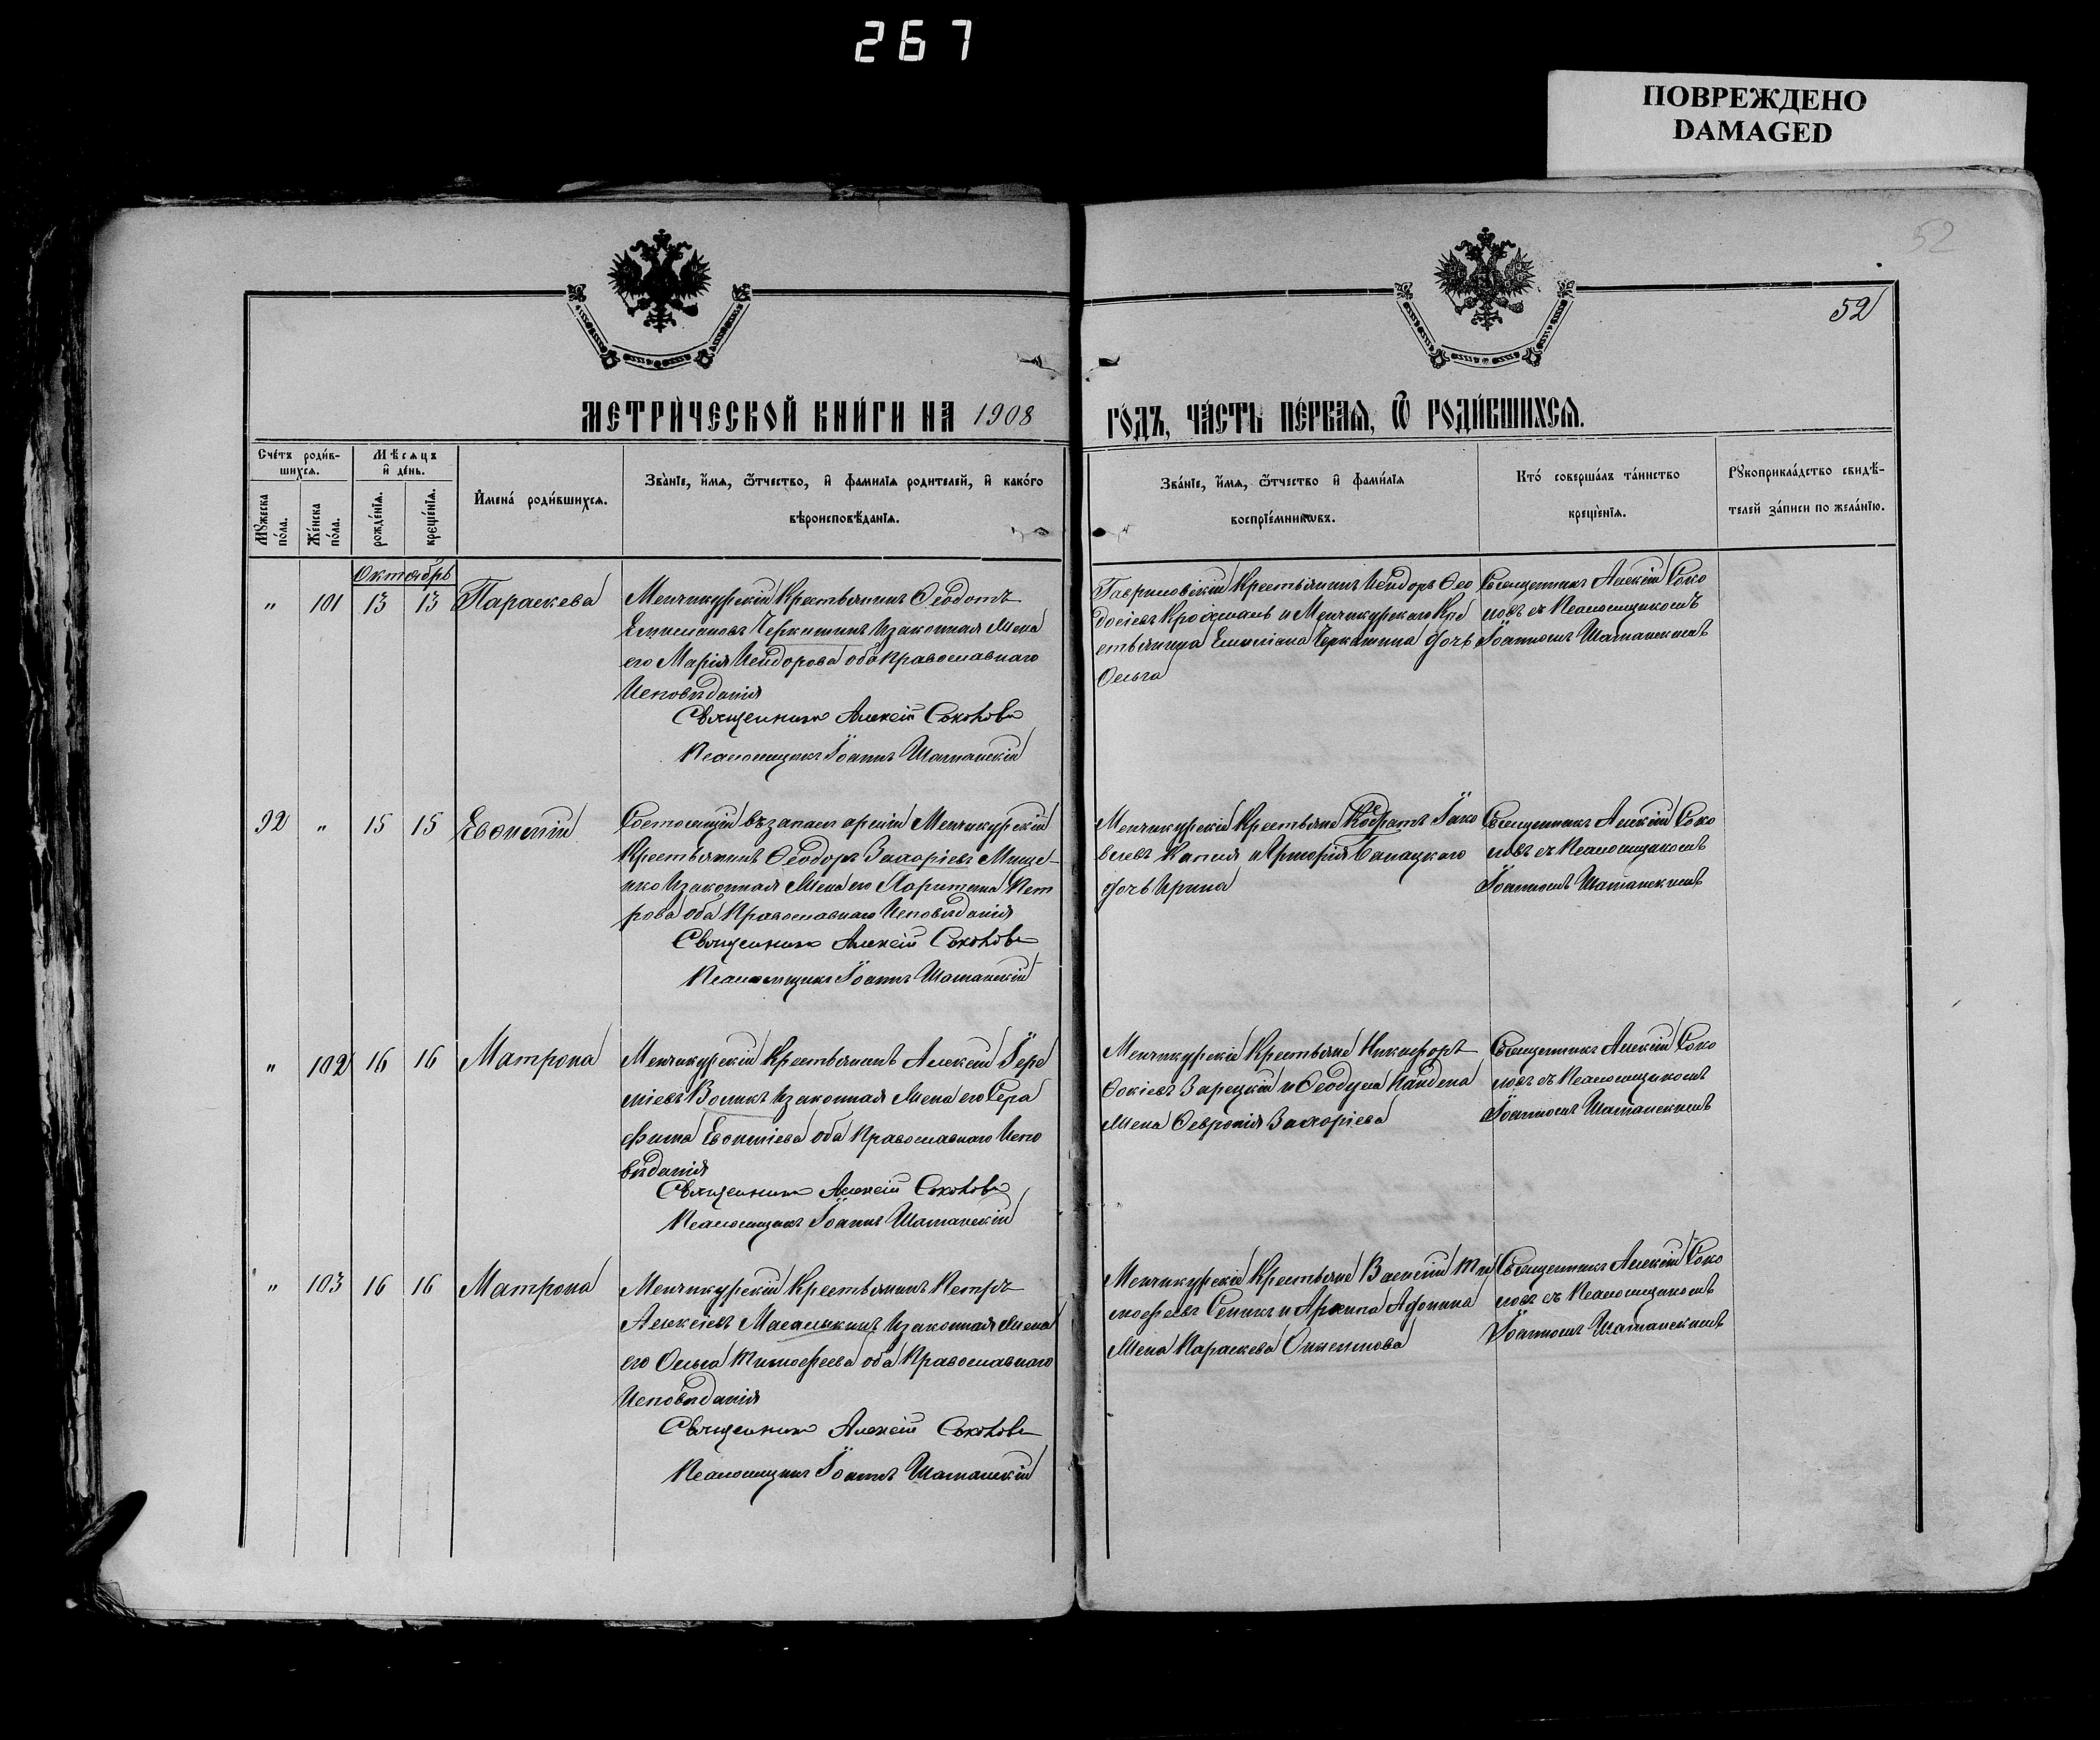 267
ПОВРЕЖДЕНО
DAMAGED
52
52
МЕТРИ́ЧЕСКОЙ КНИ́ГИ НА 1908
ГО́ДЪ, ЧА́СТЬ ПЕ́РВАѦ, Ѿ РОДИ́ВШИХСѦ.
Сче́тъ роди́в-
шихсѧ.
Мѣ́сѧцъ
и҆ де́нь.
Мꙋ́жеска
по́ла.
Же́нска
по́ла.
рожде́нїѧ.
креще́нїѧ.
И҆мена́ роди́вшихсѧ.
Зва́нїе, и҆́мѧ, ѻ҆́тчество, и҆ фами́лїѧ роди́телей, и҆ како́гѡ
вѣроисповѣ́данїѧ.
Зва́нїе, и҆́мѧ, ѻ҆́тчество и҆ фами́лїѧ
воспрїе́мникѡвъ.
Кто́ соверша́лъ та́инство
креще́нїѧ.
Рꙋкоприкла́дство свидѣ́-
телей за́писи по жела́нїю.
Октябрь
" 101 13 13 Параскева
Менчикурскій Крестьянинъ Ѳеодотъ
Емиліановъ Черкашинъ и законная жена
его Марія Исидорова оба Православнаго
Исповѣданія
Священникъ Алексій Соколовъ
Псаломщикъ Іоаннъ Шатанскій
Гавриловскій Крестьянинъ Исидоръ Ѳео
досіевъ и Менчикурскаго Кре
стьянина Емиліана Черкашина дочь
Ольга
Священникъ Алексій Соко
ловъ съ Псаломщикомъ
Іоанномъ Шатанскимъ
92 " 15 15 Евѳимій
Состоящій въ запасѣ арміи Менчикурскій
Крестьянинъ Ѳеодоръ Захаріевъ Мище-
нко и законная жена его Харитина Пет
рова оба Православнаго Исповѣданія
Священникъ Алексій Соколовъ
Псаломщикъ Іоаннъ Шатанскій
Менчикурскіе Крестьяне Кодратъ Іако
влевъ и Григорія
дочь Ирина
Священникъ Алексій Соко
ловъ съ Псаломщикомъ
Іоанномъ Шатанскимъ
" 102 16 16 Матрона
Менчикурскій Крестьянинъ Алексій Іере
міевъ Воликъ и законная жена его Сера
фима Евѳиміева оба Православнаго Испо
вѣданія
Священникъ Алексій Соколовъ
Псаломщикъ Іоаннъ Шатанскій
Менчикурскіе Крестьяне Никифоръ
Ѳокіевъ Зарецкій и Ѳеодула
жена Ѳевронія Захаріева
Священникъ Алексій Соко
ловъ съ Псаломщикомъ
Іоанномъ Шатанскимъ
" 103 16 16 Матрона
Менчикурскій Крестьянинъ Петръ
Алексіевъ Масалыкинъ и законная жена
его Ольга Тимофеева оба Православнаго
Исповѣданія
Священникъ Алексій Соколовъ
Псаломщикъ Іоаннъ Шатанскій
Менчикурскіе Крестьяне Василій Ти
мофеевъ и Архипа Афонина
жена Параскева
Священникъ Алексій Соко
ловъ съ Псаломщикомъ
Іоанномъ Шатанскимъ